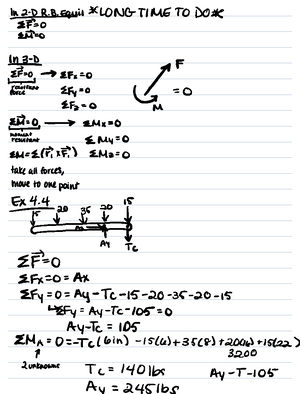 In 2-D R.B. Equil *LONG TIME TO DO*
ΣF⃗=0
ΣM⃗=0
In 3-D
ΣF⃗=0 → ΣFx=0
resultant force
ΣFy=0
ΣFz=0
F
M
=0
ΣM⃗=0 → ΣMx=0
moment resultant
ΣMy=0
ΣM=Σ(r⃗₁×F⃗₁) ΣMz=0
take all forces,
move to one point
Ex 4.4
15 20 35 20 15
Ax
Ay
Tc
ΣF⃗=0
ΣFx=0=Ax
ΣFy=0=Ay-Tc-15-20-35-20-15
ΣFy=Ay-Tc-105=0
Ay-Tc=105
ΣMA=0=-Tc(6in)-15(6)+35(8)+20(16)+15(22)
3200
2 unknowns
Tc=140lbs
Ay-T-105
Ay=245lbs